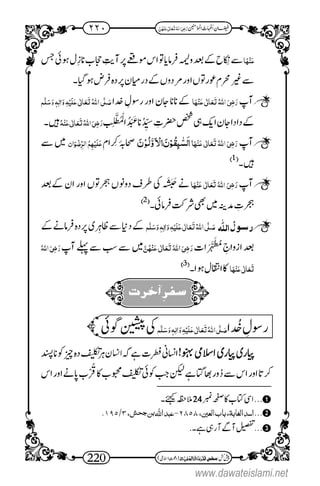 220
عَنْہَا سے نکاح کے بعد ولیمہ والے موقعے پر آیتِ حجاب نازِل ہوئی جس
سے غیر محرم عورتوں اور مردوں کے درمیان پردہ فرض ہو گیا۔
آپ رَضِیَ اللہُ تَعَالٰی عَنْہَا کے نانا جان اور رسولِ خدا صَلَّی اللہُ تَعَالٰی عَلَیْہِ وَاٰلِہٖ وَسَلَّم
کے دادا جان ایک ہی شخص حضرتِ سیِّدُنا عبدُ المطَّلِب رَضِیَ اللہُ تَعَالٰی عَنْہُ ہیں۔
آپ رَضِیَ اللہُ تَعَالٰی عَنْہَا اَلسّٰبِقُوْنَ الْاَوَّلُوْنَ صحابۂ کرام عَلَیْہِمُ الرِّضْوَان میں سے
ہیں۔ (1)
آپ رَضِیَ اللہُ تَعَالٰی عَنْہَا نے حبشہ کی طرف دونوں ہجرتوں اور ان کے بعد
ہجرتِ مدینہ میں بھی شرکت فرمائی۔ (2)
رسولُ اللہ صَلَّی اللہُ تَعَالٰی عَلَیْہِ وَاٰلِہٖ وَسَلَّم کے دنیا سے ظاہِری پردہ فرمانے کے
بعد ازواجِ مُطَہَّرات رَضِیَ اللہُ تَعَالٰی عَنْہُنَّ میں سے سب سے پہلے آپ رَضِیَ اللہُ
تَعَالٰی عَنْہَا کا انتقال ہوا۔ (3)
سفرِ آخرت
رسولِ خُدا صَلَّی اللہُ تَعَالٰی عَلَیْہِ وَاٰلِہٖ وَسَلَّم کی پیشین گوئی
پیاری پیاری اسلامی بہنو! انسانی فطرت ہے کہ انسان ہر تکلیف دہ چیز کو ناپسند
کرتا اور اس سے دُور بھاگتا ہے لیکن جب کوئی تکلیف محبوب کا قُرْب پانے اور اس
1...اسی کتاب کا صفحہ نمبر 24 ملاحظہ کیجئے۔
2...اسد الغابة، باب العین، ۲۸۵۸-عبد اللہ بن جحش، ۳/۱۹۵.
3...تفصیل آگے آ رہی ہے۔
220
www.dawateislami.net